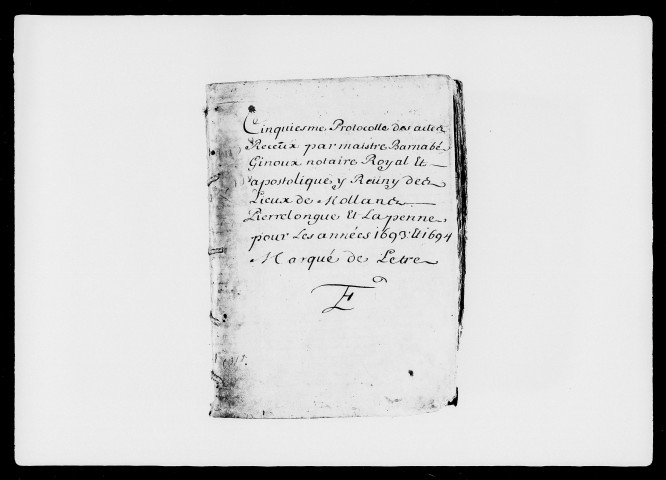 Cinquiesme Protocolle des actes
Receus par maistre Barnabé
Ginoux notaire Royal Et
apostolique y Reüny des
Lieux de Mollans
Pierrelongue Et Lapenne
pour Les années 1693: Et 1694
Marqué de Letre
E